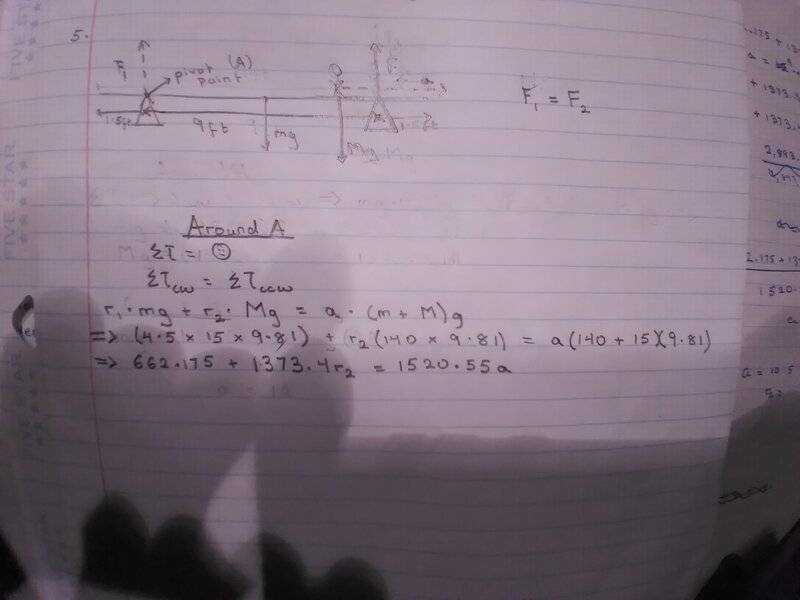 5.
F₁
pivot (A)
point
1.5ft
9ft
mg
Mg
1.5ft
F₁ = F₂
Around A
Στ = ☺
Στcw = Στccw
r₁·mg + r₂· Mg = a · (m + M)g
=> (4.5 x 15 x 9.81) + r₂ (140 x 9.81) = a(140 + 15)(9.81)
=> 662.175 + 1373.4r₂ = 1520.55a
FIVE STAR
FIVE STAR